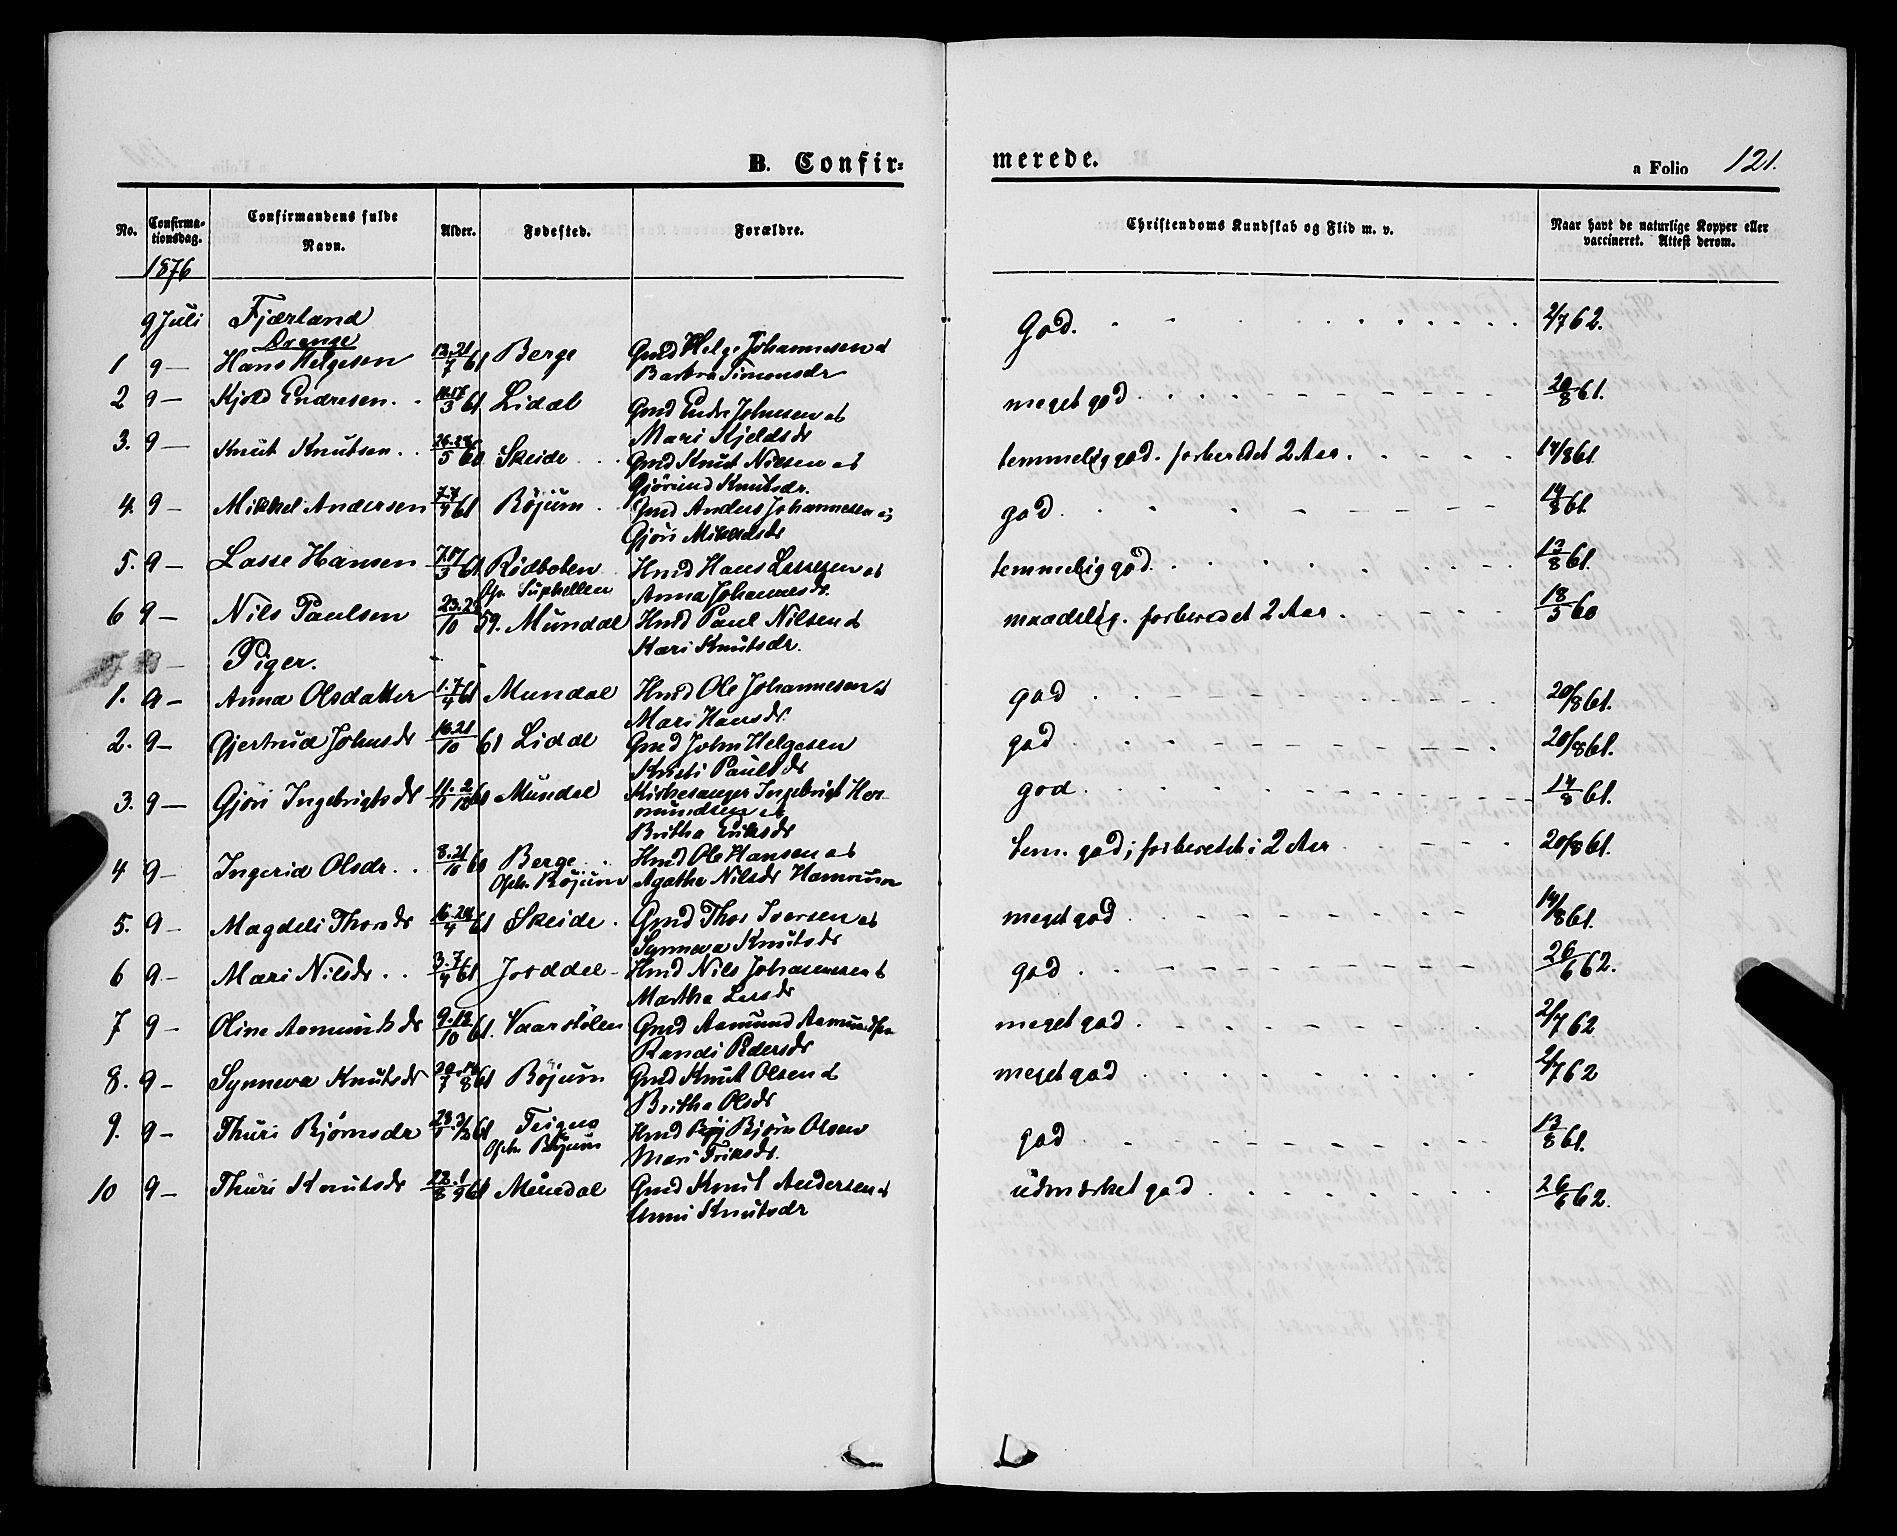 B. Confir-
merede.
a Folio 121.
No. Confirma-tionsdag. Confirmandens fulde Navn. Alder. Fødested. Forældre. Christendoms Kundskab og Flid m. v. Naar havt de naturlige Kopper eller vaccineret. Attest derom.
1876
9 Juli Fjærland
Drenge
1 9 — Hans Helgesen 61 Berge Gmd Helge Johannesen et God. 2/7 62.
Barbra Simonsdr
2 9 — Kjeld Endresen 61 Lidal Gmd Endre Johnsen et meget god 20/8 61.
Mari Kjeldsdr
3. 9 — Knut Knutsen 60 Skeide Gmd Knut Nilsen et temmelig god. forberedet 2 Aar. 14/8 61
Gjørund Knutsdr.
4. 9 — Mikkel Andersen 7.7/4 61 Bøjum Gmd Anders Johannesen et god 14/8 61
Gjøri Mikkelsdr
5. 9 — Lasse Hansen 61 Rødbøten Hmd Hans Lassesen et temmelig god 13/8 61.
Opr. Suphellen Anna Johannesdr.
6 9 — Nils Paulsen 59. Mundal Hmd Paul Nilsen et maadelig. forberedet 2 Aar. 18/5 60
Kari Knutsdr.
Piger.
1. 9 — Anna Olsdatter 1.7/4 61 Mundal Hmd Ole Johannesen et god 20/8 61.
Mari Hansdr.
2. 9 — Gjertrud Johnsdr 16.21/10 61 Lidal Gmd John Helgesen god 20/8 61.
Kristi Paulsdr
3. 9 — Gjøri Ingebrigtsdr 61 Mundal Kirkesanger Ingebrigt Her- god 14/8 61.
mundsen et
Britha Eriksdr
4 9 — Ingerid Olsdr. 8.21/10 60 Berge Hmd Ole Hansen et tem. god; forberedet i 2 Aar 20/8 61.
Oph. Bøjum Agatha Nilsdr Hamrum
5. 9 — Magdeli Thorsdr 61 Skeide. Gmd Thor Iversen et meget god 14/8 61.
Synneva Knutsdr
6 9 — Mari Nilsdr 3.7/4 61 Jorddal Hmd Nils Johannesen et god 26/6 62.
Martha Larsdr
7 9 — Oline Asmundsdr 9.13/10 61. Vaarstølen Gmd Asmund Asmundsen meget god 2/7 62
Randi Pedersdr
8. 9 — Synneva Knutsdr 61 Bøjum Gmd Knut Olsen et meget god 2/7 62
Britha Olsdr
9. 9 — Thuri Bjørnsdr 61 Teigen Hmd Bjørn Olsen god 13/8 61.
Oph. Bøjum Mari Eriksdr.
10 9 — Thuri Knutsdr 61 Mundal Gmd Knut Andersen et udmærket god 26/6 62.
Anni Knutsdr